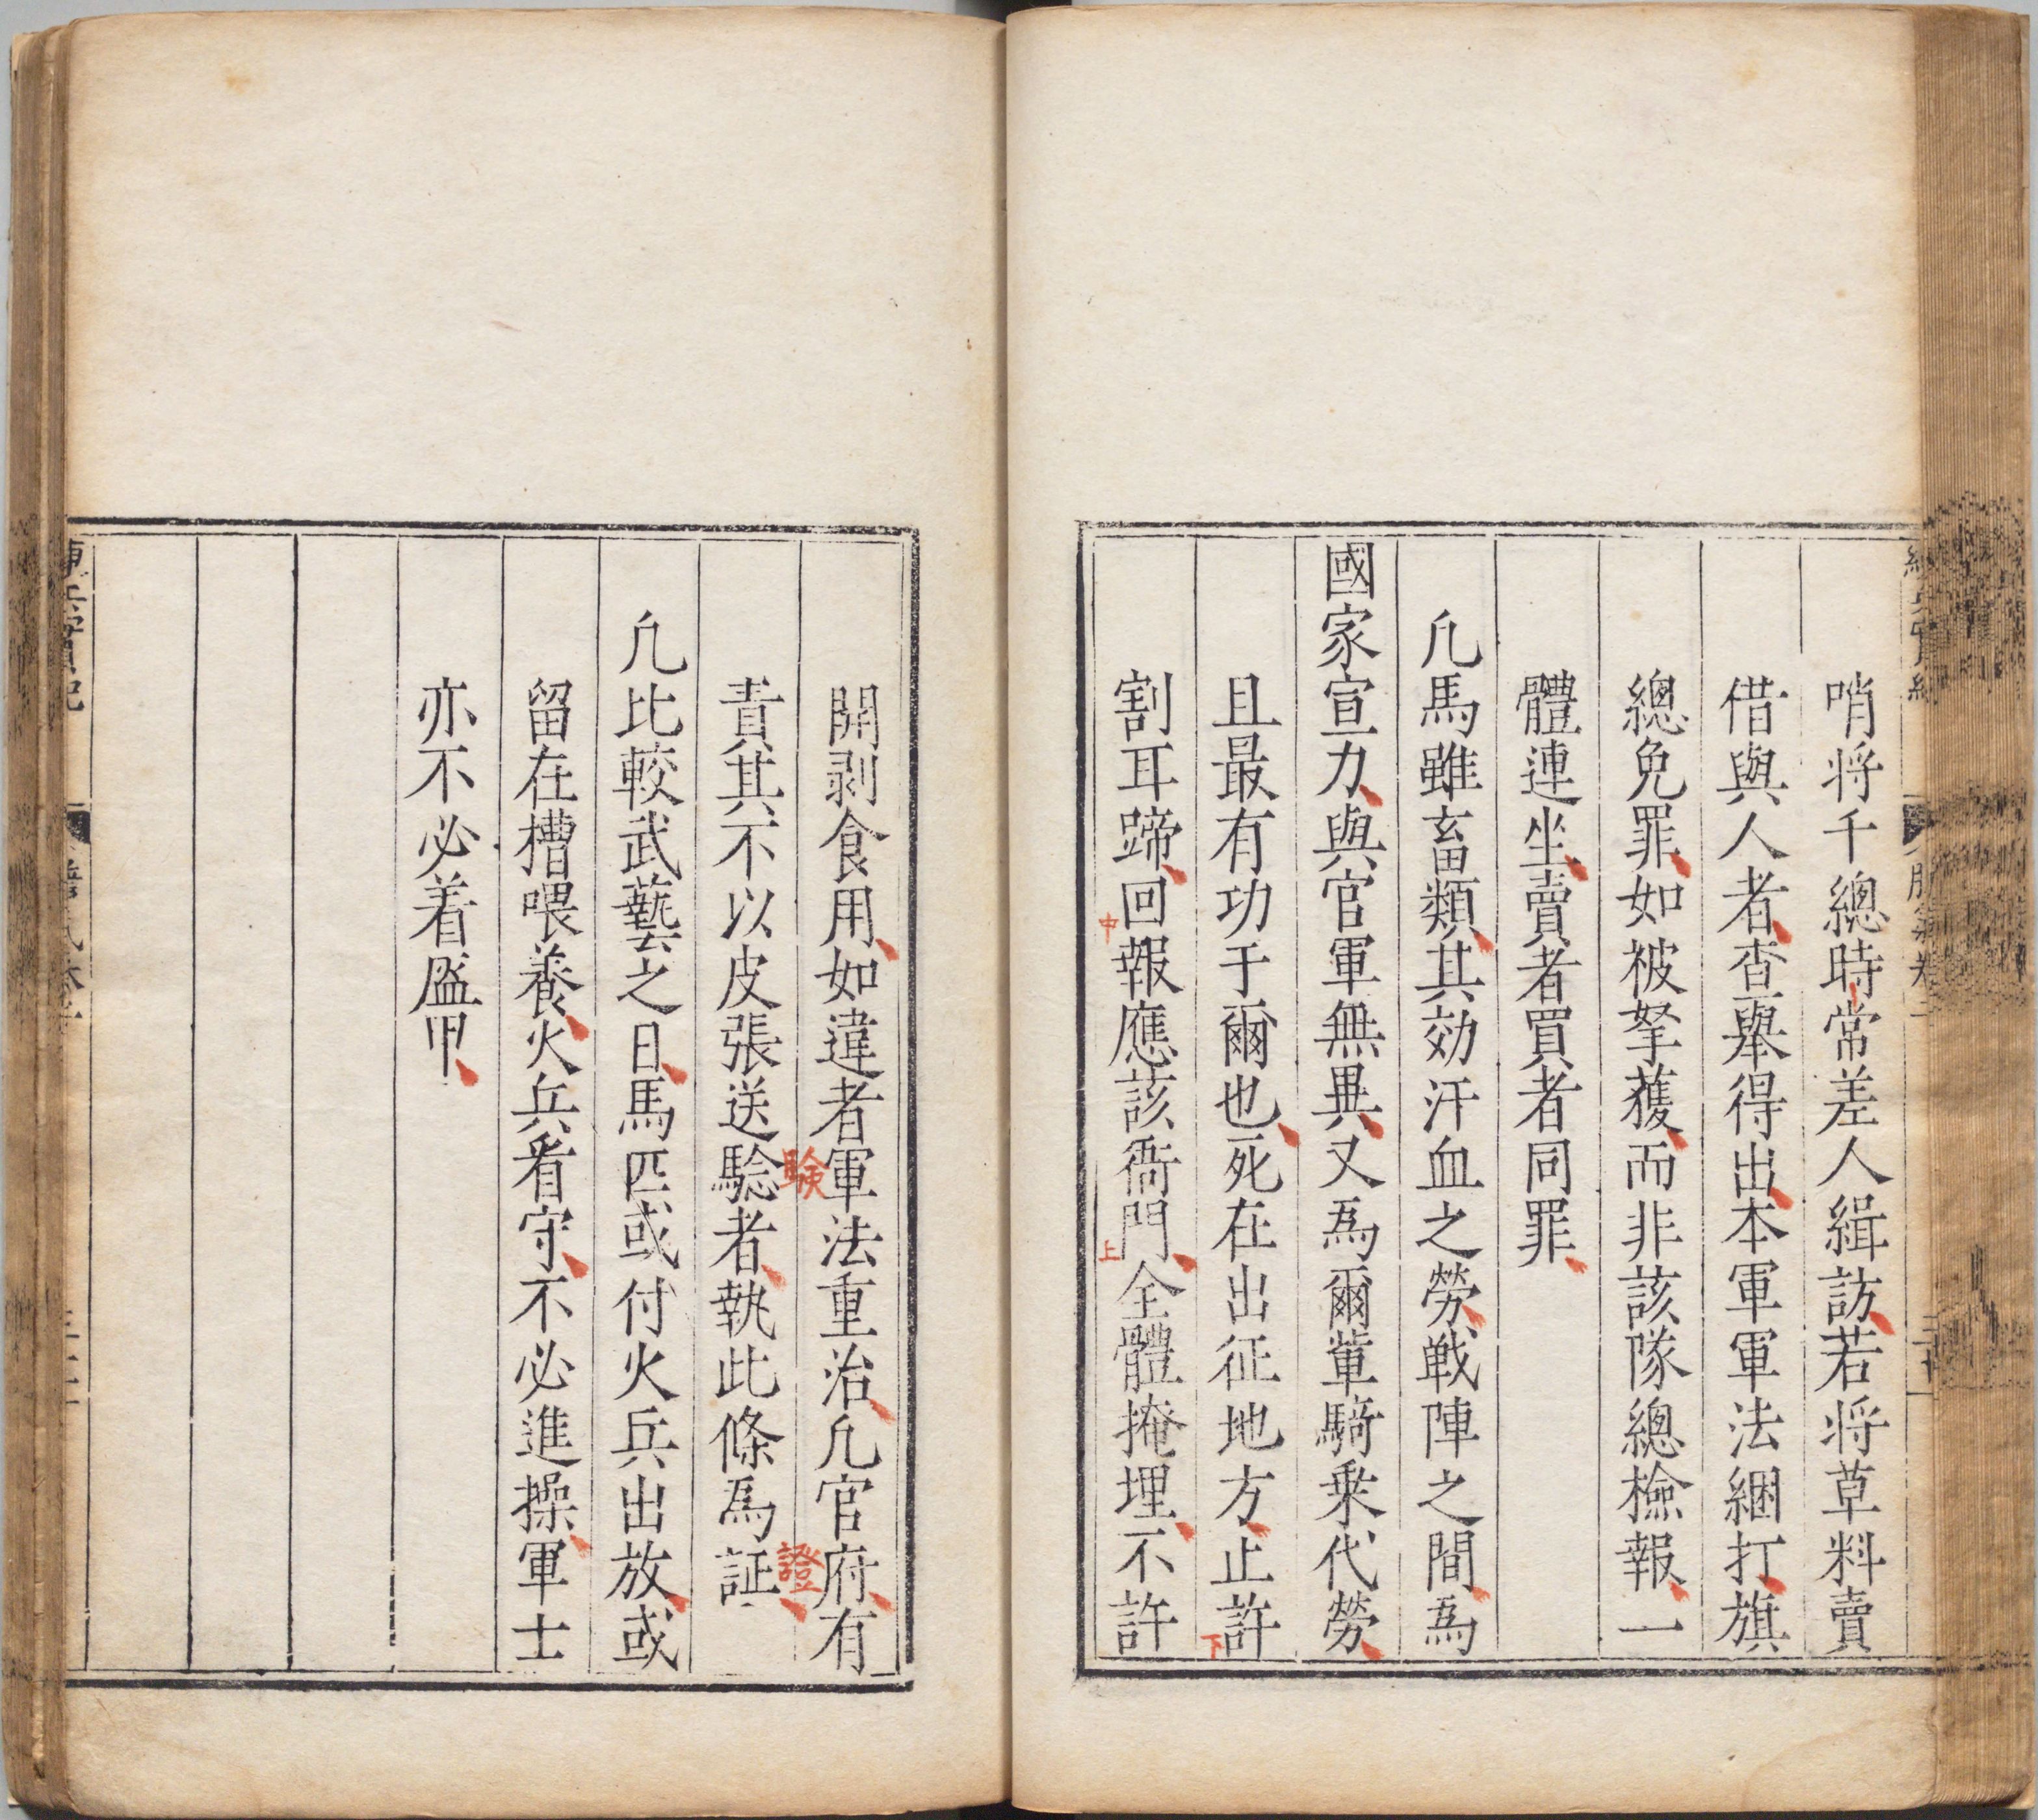 哨将千總時常差人緝訪若将草料賣
借與人者查舉得出本軍軍法綑打旗
總免罪如被拏獲而非該隊總檢報一
體連坐賣者買者同罪
凢馬雖畜類其効汗血之勞戦陣之間爲
國家宣力與官軍無異又爲爾輩騎乗代勞
且最有功于爾也死在出征地方止許
割耳蹄回報應該衙門全體掩埋不許
中
上
下
開剥食用如違者軍法重治凢官府有
責其不以皮張送騐者執此條爲証
驗
證
凢比較武藝之日馬匹或付火兵出放或
留在槽喂養火兵看守不必進操軍士
亦不必着盔甲